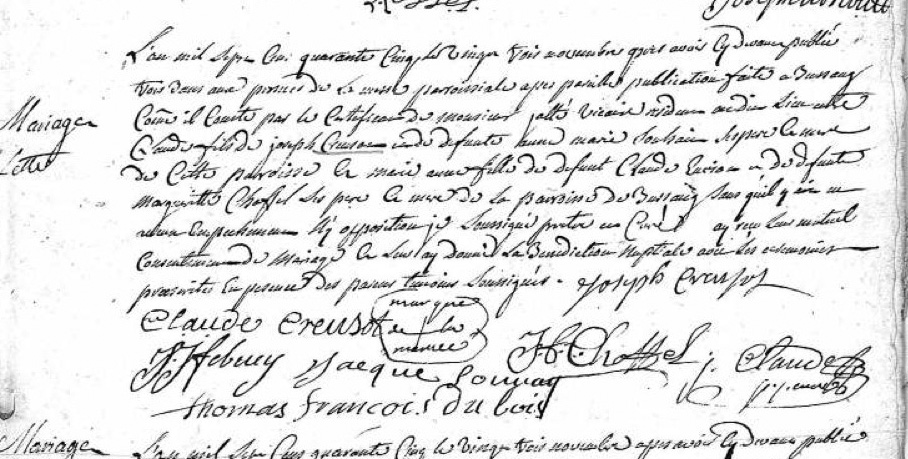 Mariage
L'an mil sept cens quarante cinq le vingt trois novembre apres avoir cy devant publié
trois dans aux prones de la messe paroissiale apres pareille publication faite a Bussang
Come il Conste par le Certificat de monsieur jollé vicaire audit lieu
Claude fils de joseph Creusot et de defunte anne marie Souhait ses pere et mere
de Cette paroisse et marie anne fille de defunt Claude et de defunte
margueritte Choffel ses pere et mere de la paroisse de Bussang sans qu'il y ait eu
aucun empechement ny opposition je soussigné pretre et Curé ay reçu leur mutuel
Consentement de Mariage et leur ay donné La Benediction Nuptiale avec les ceremonies
prescrites en presence des parens temoins soussignés. joseph Creusot
Claude Creusot marque de la mariée
J. H. Choffel Claude
jacque Louvat
thomas françois du bois
Mariage L'an mil sept Cens quarante Cinq le vingt trois novembre apres avoir Cy devant publié